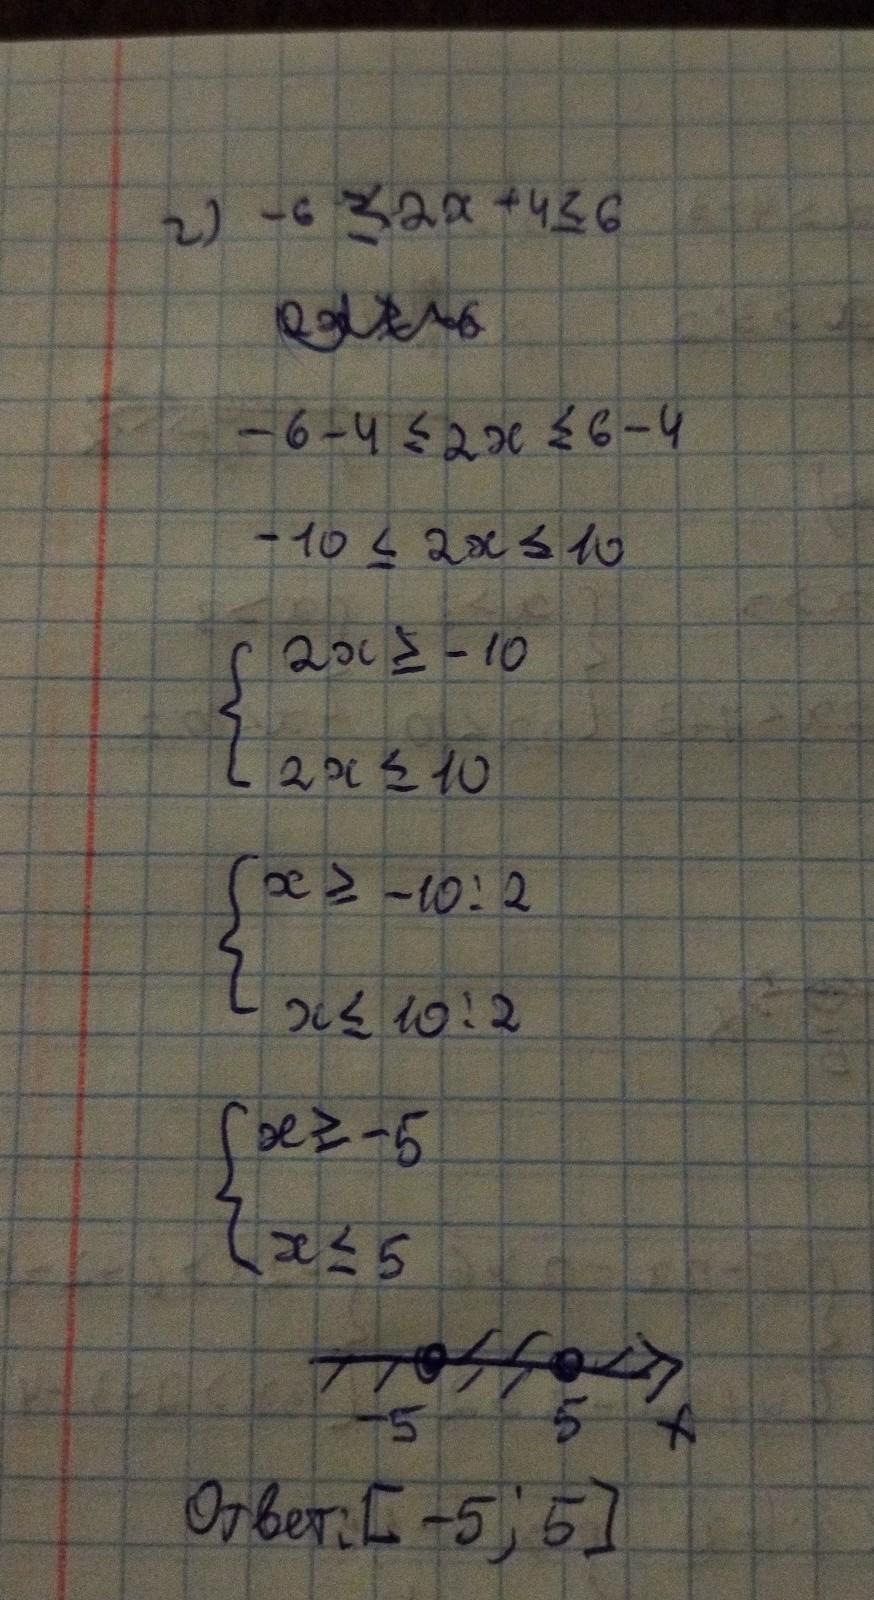 г) -6 ≤ 2x + 4 ≤ 6
-6-4 ≤ 2x ≤ 6-4
-10 ≤ 2x ≤ 10
{ 2x ≥ -10
2x ≤ 10
{ x ≥ -10:2
x ≤ 10:2
{ x ≥ -5
x ≤ 5
-5 5 x
Ответ: [-5; 5]